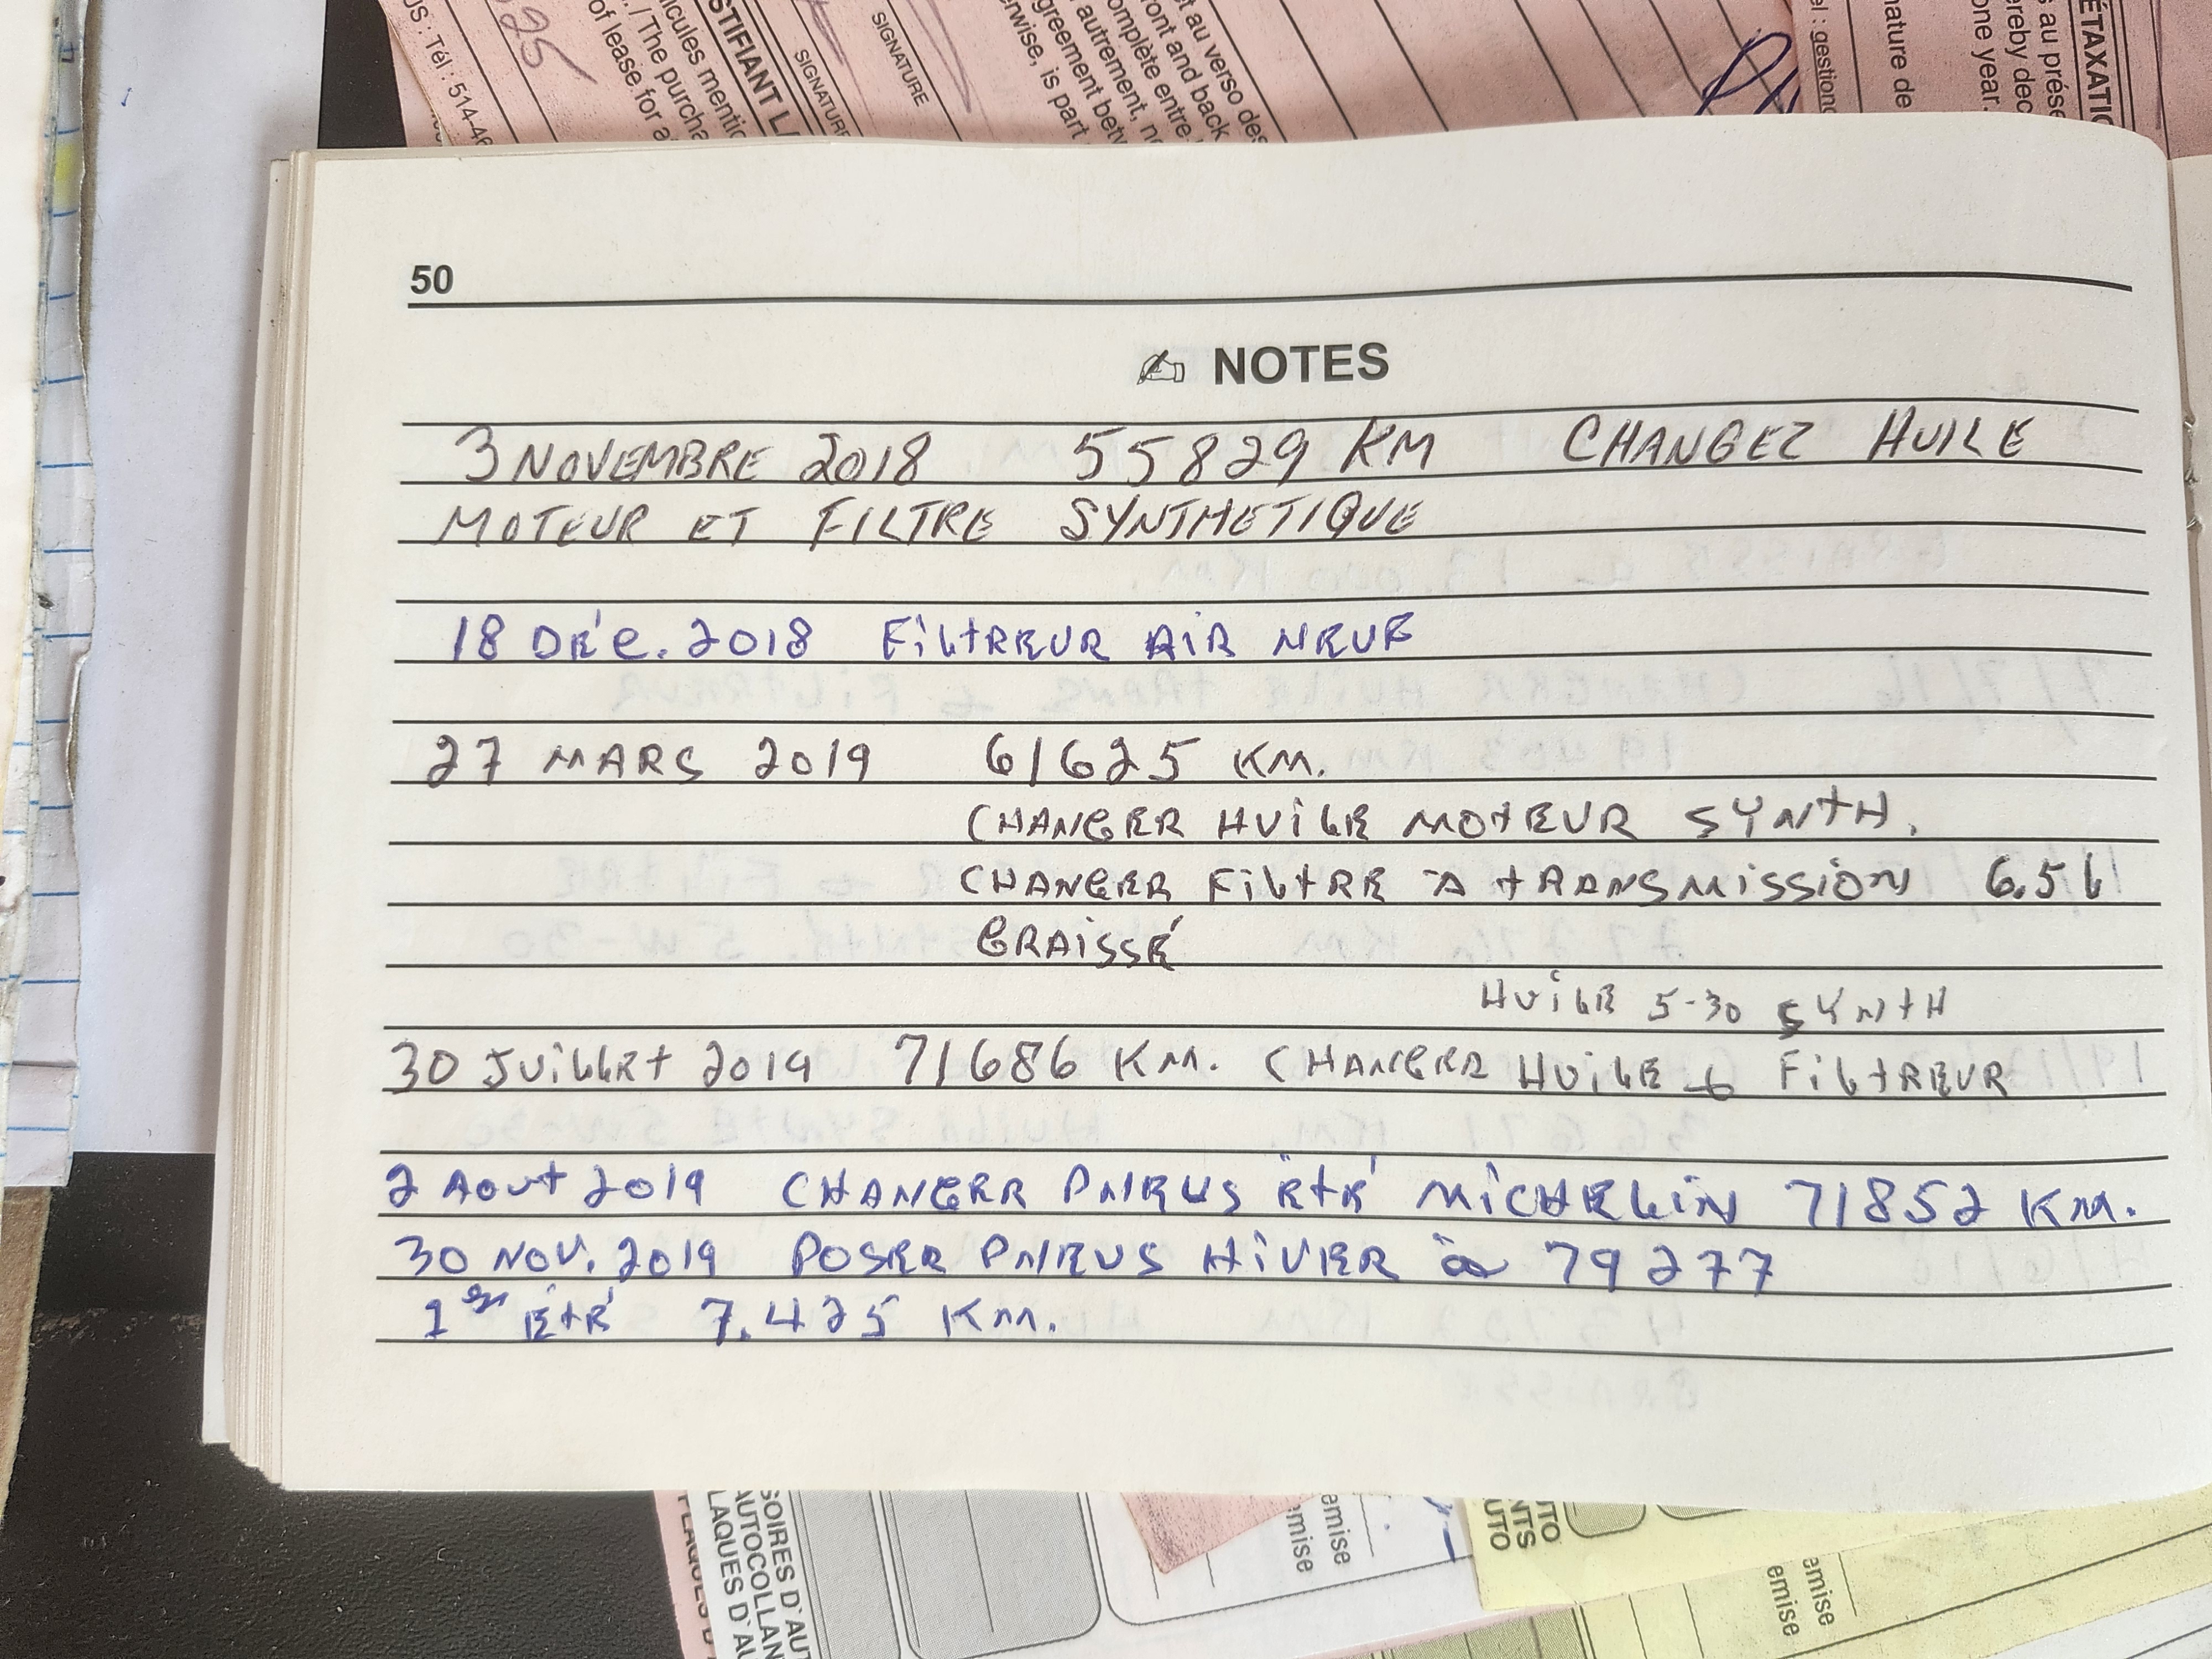 US : Tél : 514-46
625
of lease for a
./ The purcha
icules mentic
STIFIANT L
SIGNATURE
SIGNATURE
erwise, is part
greement betv
autrement, n
omplète entre
ront and back
t au verso des
el : gestion
nature de
one year.
ereby dec
s au prése
ÉTAXATIO
50
NOTES
3 NOVEMBRE 2018 55829 KM CHANGEZ HUILE
MOTEUR ET FILTRE SYNTHETIQUE
18 DÉC. 2018 FILTREUR AIR NEUF
27 MARS 2019 61625 KM.
CHANGER HUILE MOTEUR SYNTH.
CHANGER FILTRE À TRANSMISSION 6.5 L
GRAISSÉ
HUILE 5-30 SYNTH
30 JUILLET 2019 71686 KM. CHANGER HUILE & FILTREUR
2 AOUT 2019 CHANGER PNEUS ÉTÉ MICHELIN 71852 KM.
30 NOV. 2019 POSER PNEUS HIVER à 79277
1er ÉTÉ 7.425 KM.
PLAQUES D'
LAQUES D'AU
AUTOCOLLAN
SOIRES D'AUT
emise
emise
UTO
NTS
UTO
emise
emise